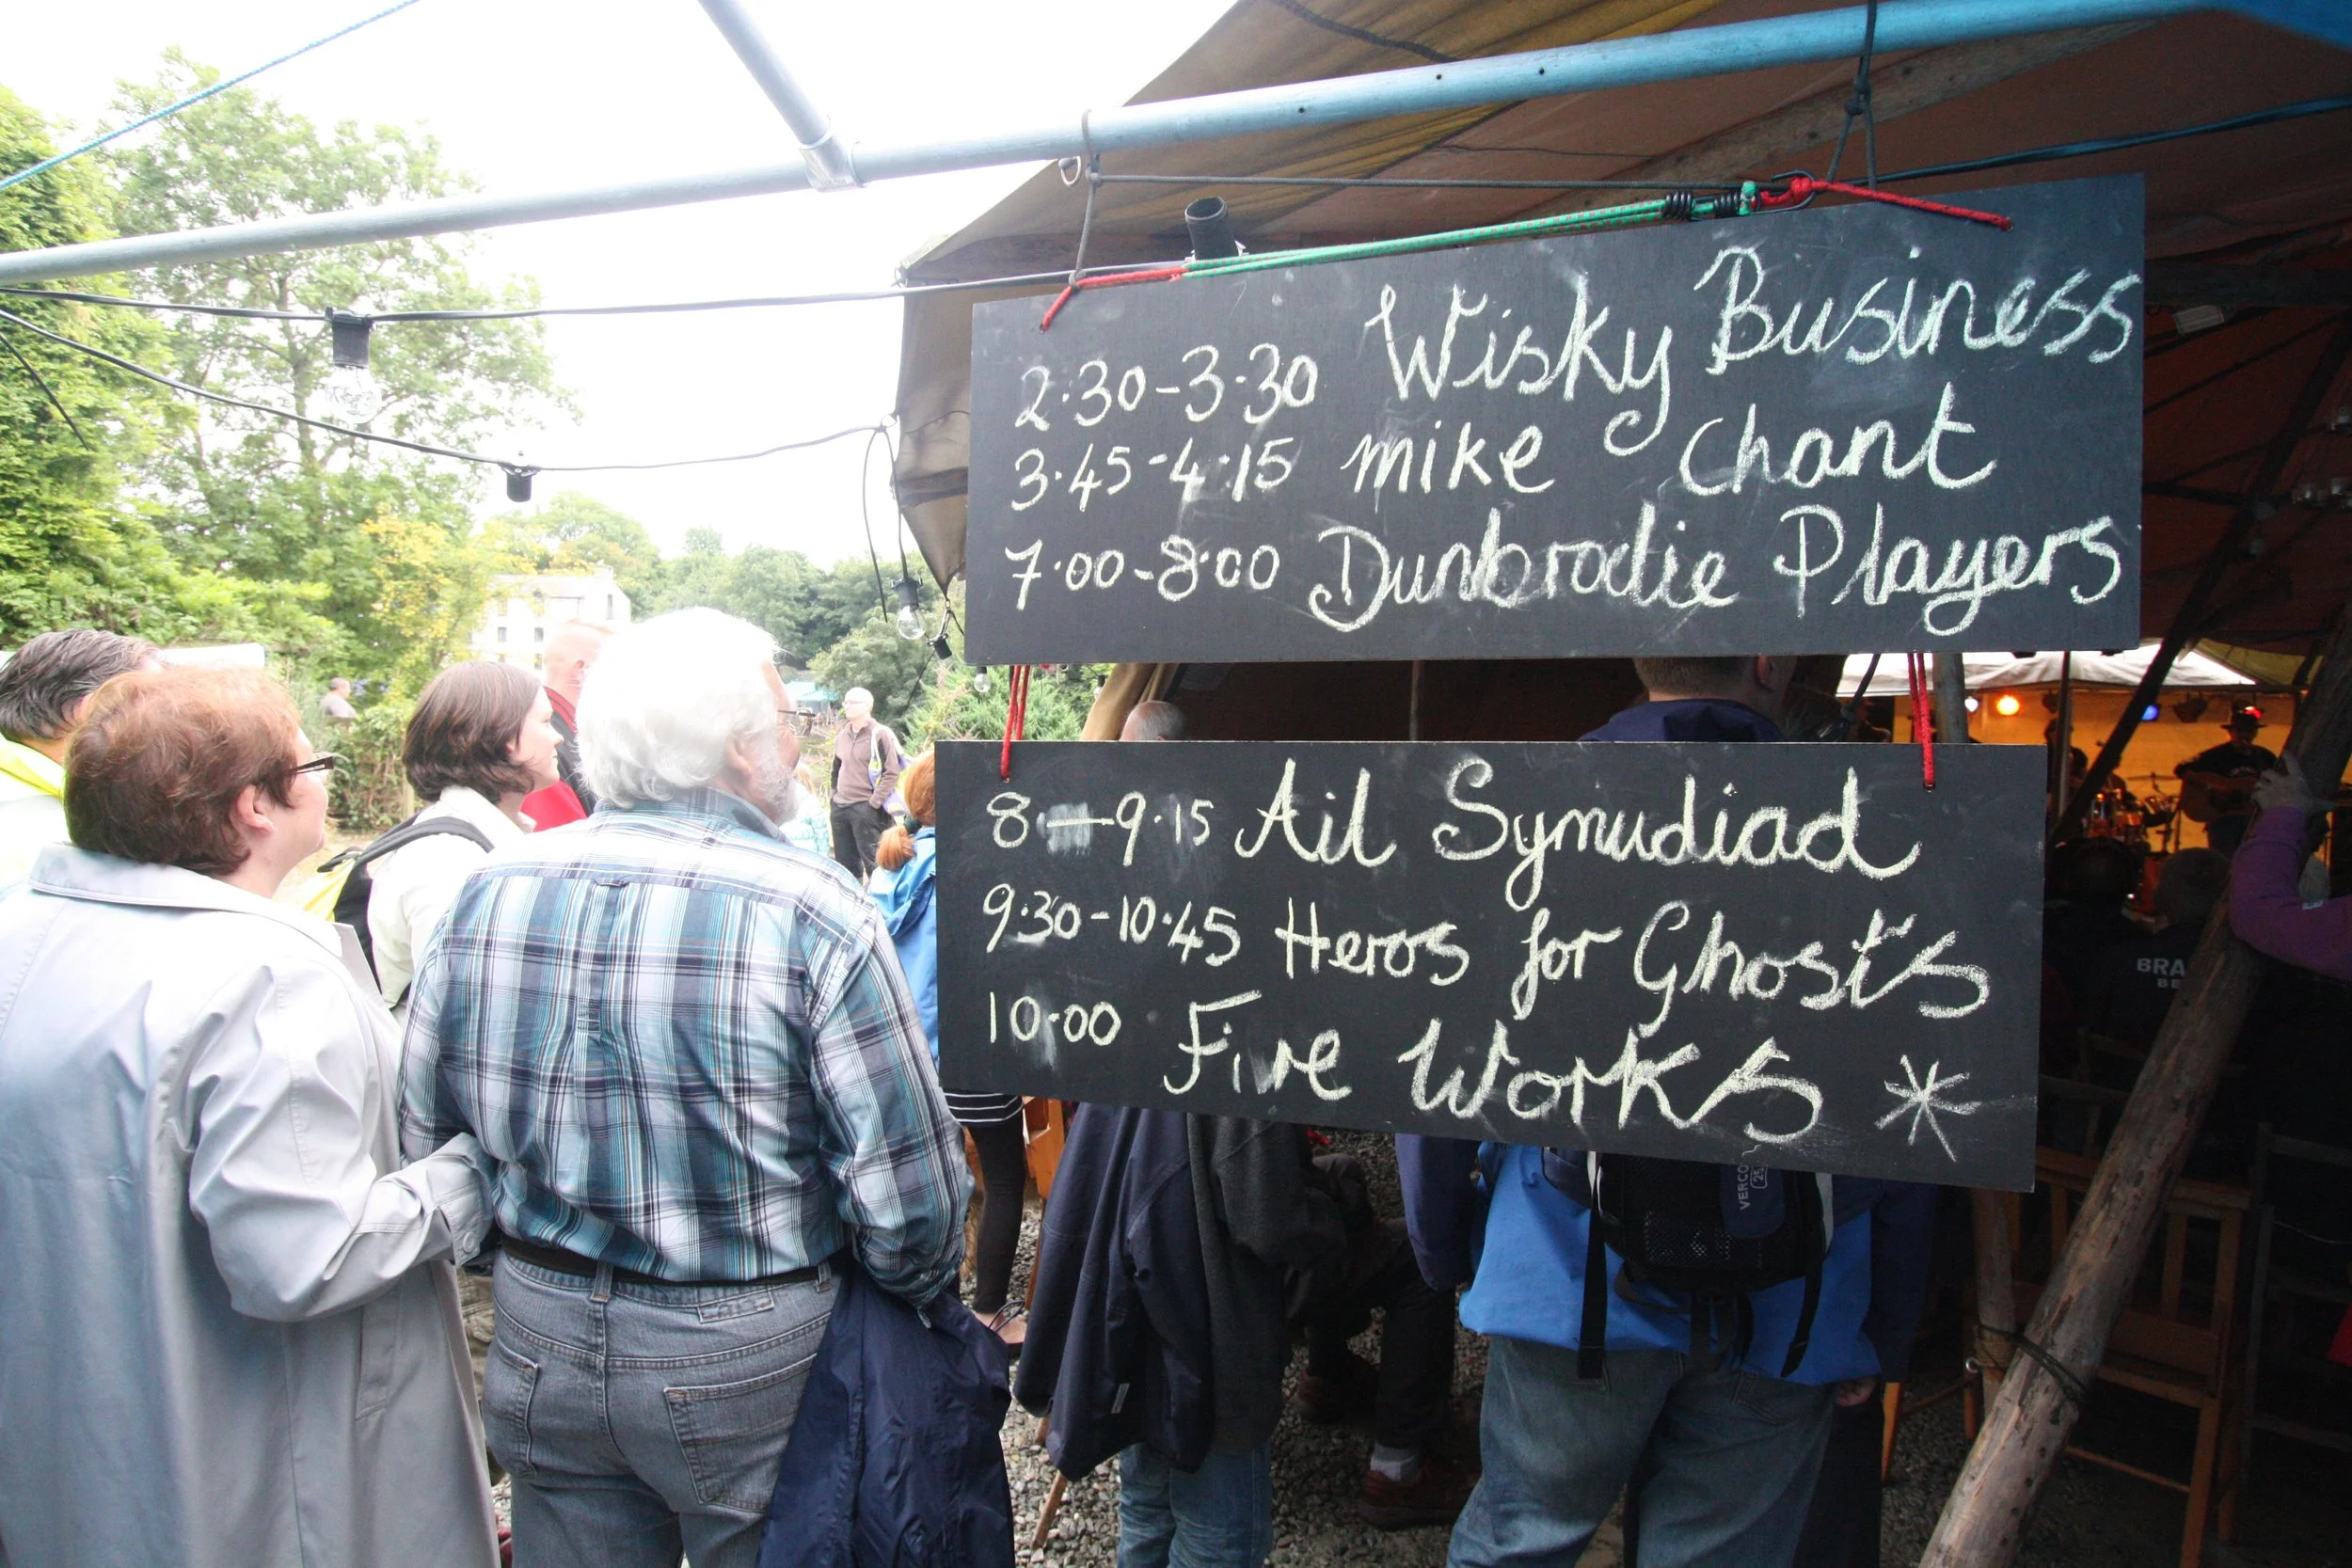 2·30-3·30 Wisky Business
3·45-4·15 mike Chant
7·00-8·00 Dunbrodie Players
8·—9·15 Ail Symudiad
9·30-10·45 Heros for Ghost's
10·00 Fire Works *
BRA
BE
VERCO
25